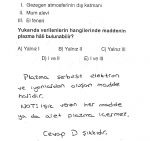 I. Gezegen atmosferinin dış katmanı
II. Mum alevi
III. El feneri
Yukarıda verilenlerin hangilerinde maddenin
plazma hâli bulunabilir?
A) Yalnız I B) Yalnız II C) Yalnız III
D) I ve II E) I, II ve III
Plazma serbest elektron
ve iyonlardan oluşan madde
halidir.
NOT: Işık veren her madde
ya da alet plazma içermez.
Cevap D şıkkıdır.